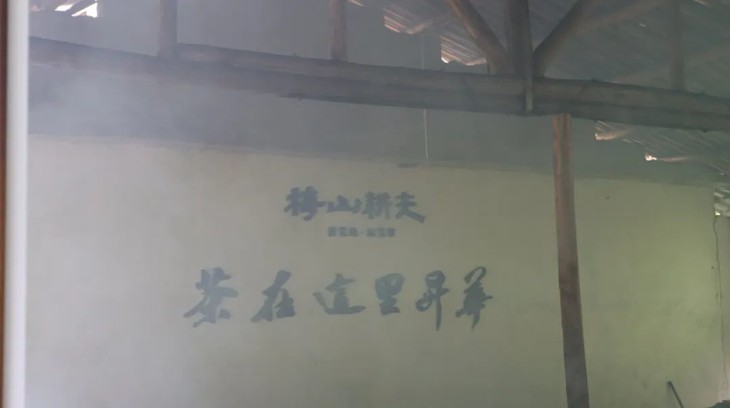 梅山耕夫
茶在這里昇華